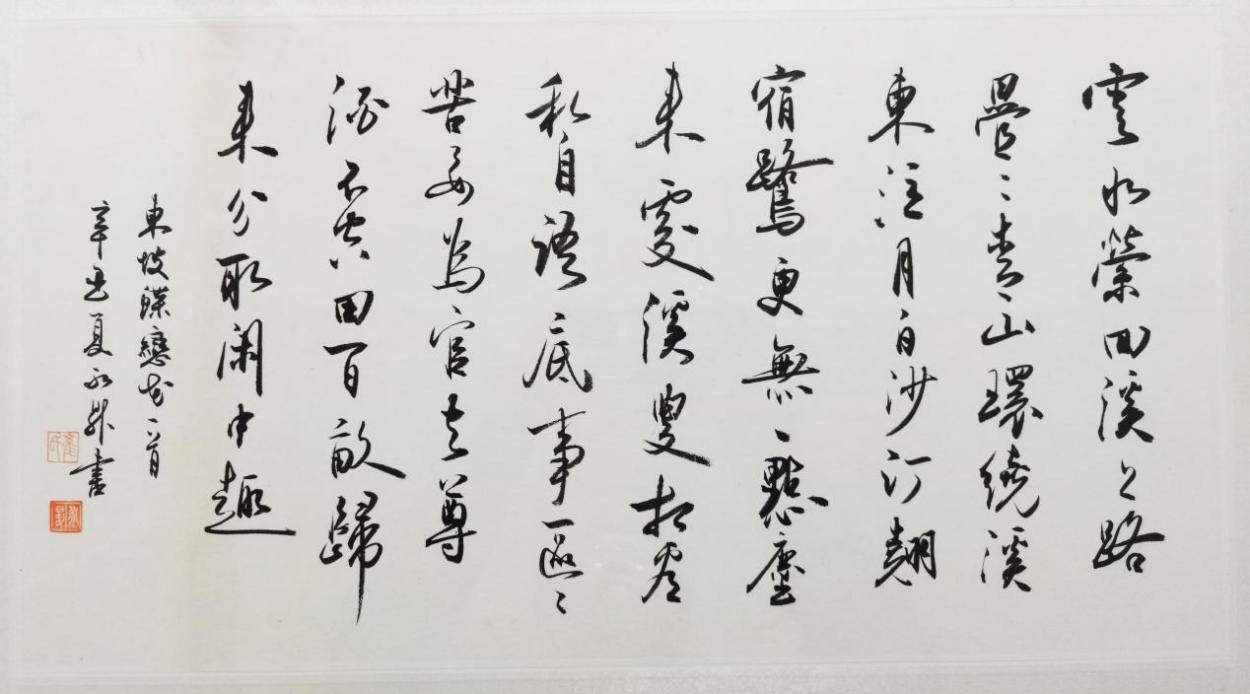 雲水縈回溪上路
疊〻青山環繞溪
東注月白沙汀翹
宿鷺更無一點塵
來處溪叟相看
私自語底事區〻
苦要為官去尊
酒不空田百畝歸
來分取閑中趣
東坡蝶戀花一首
辛丑夏永書